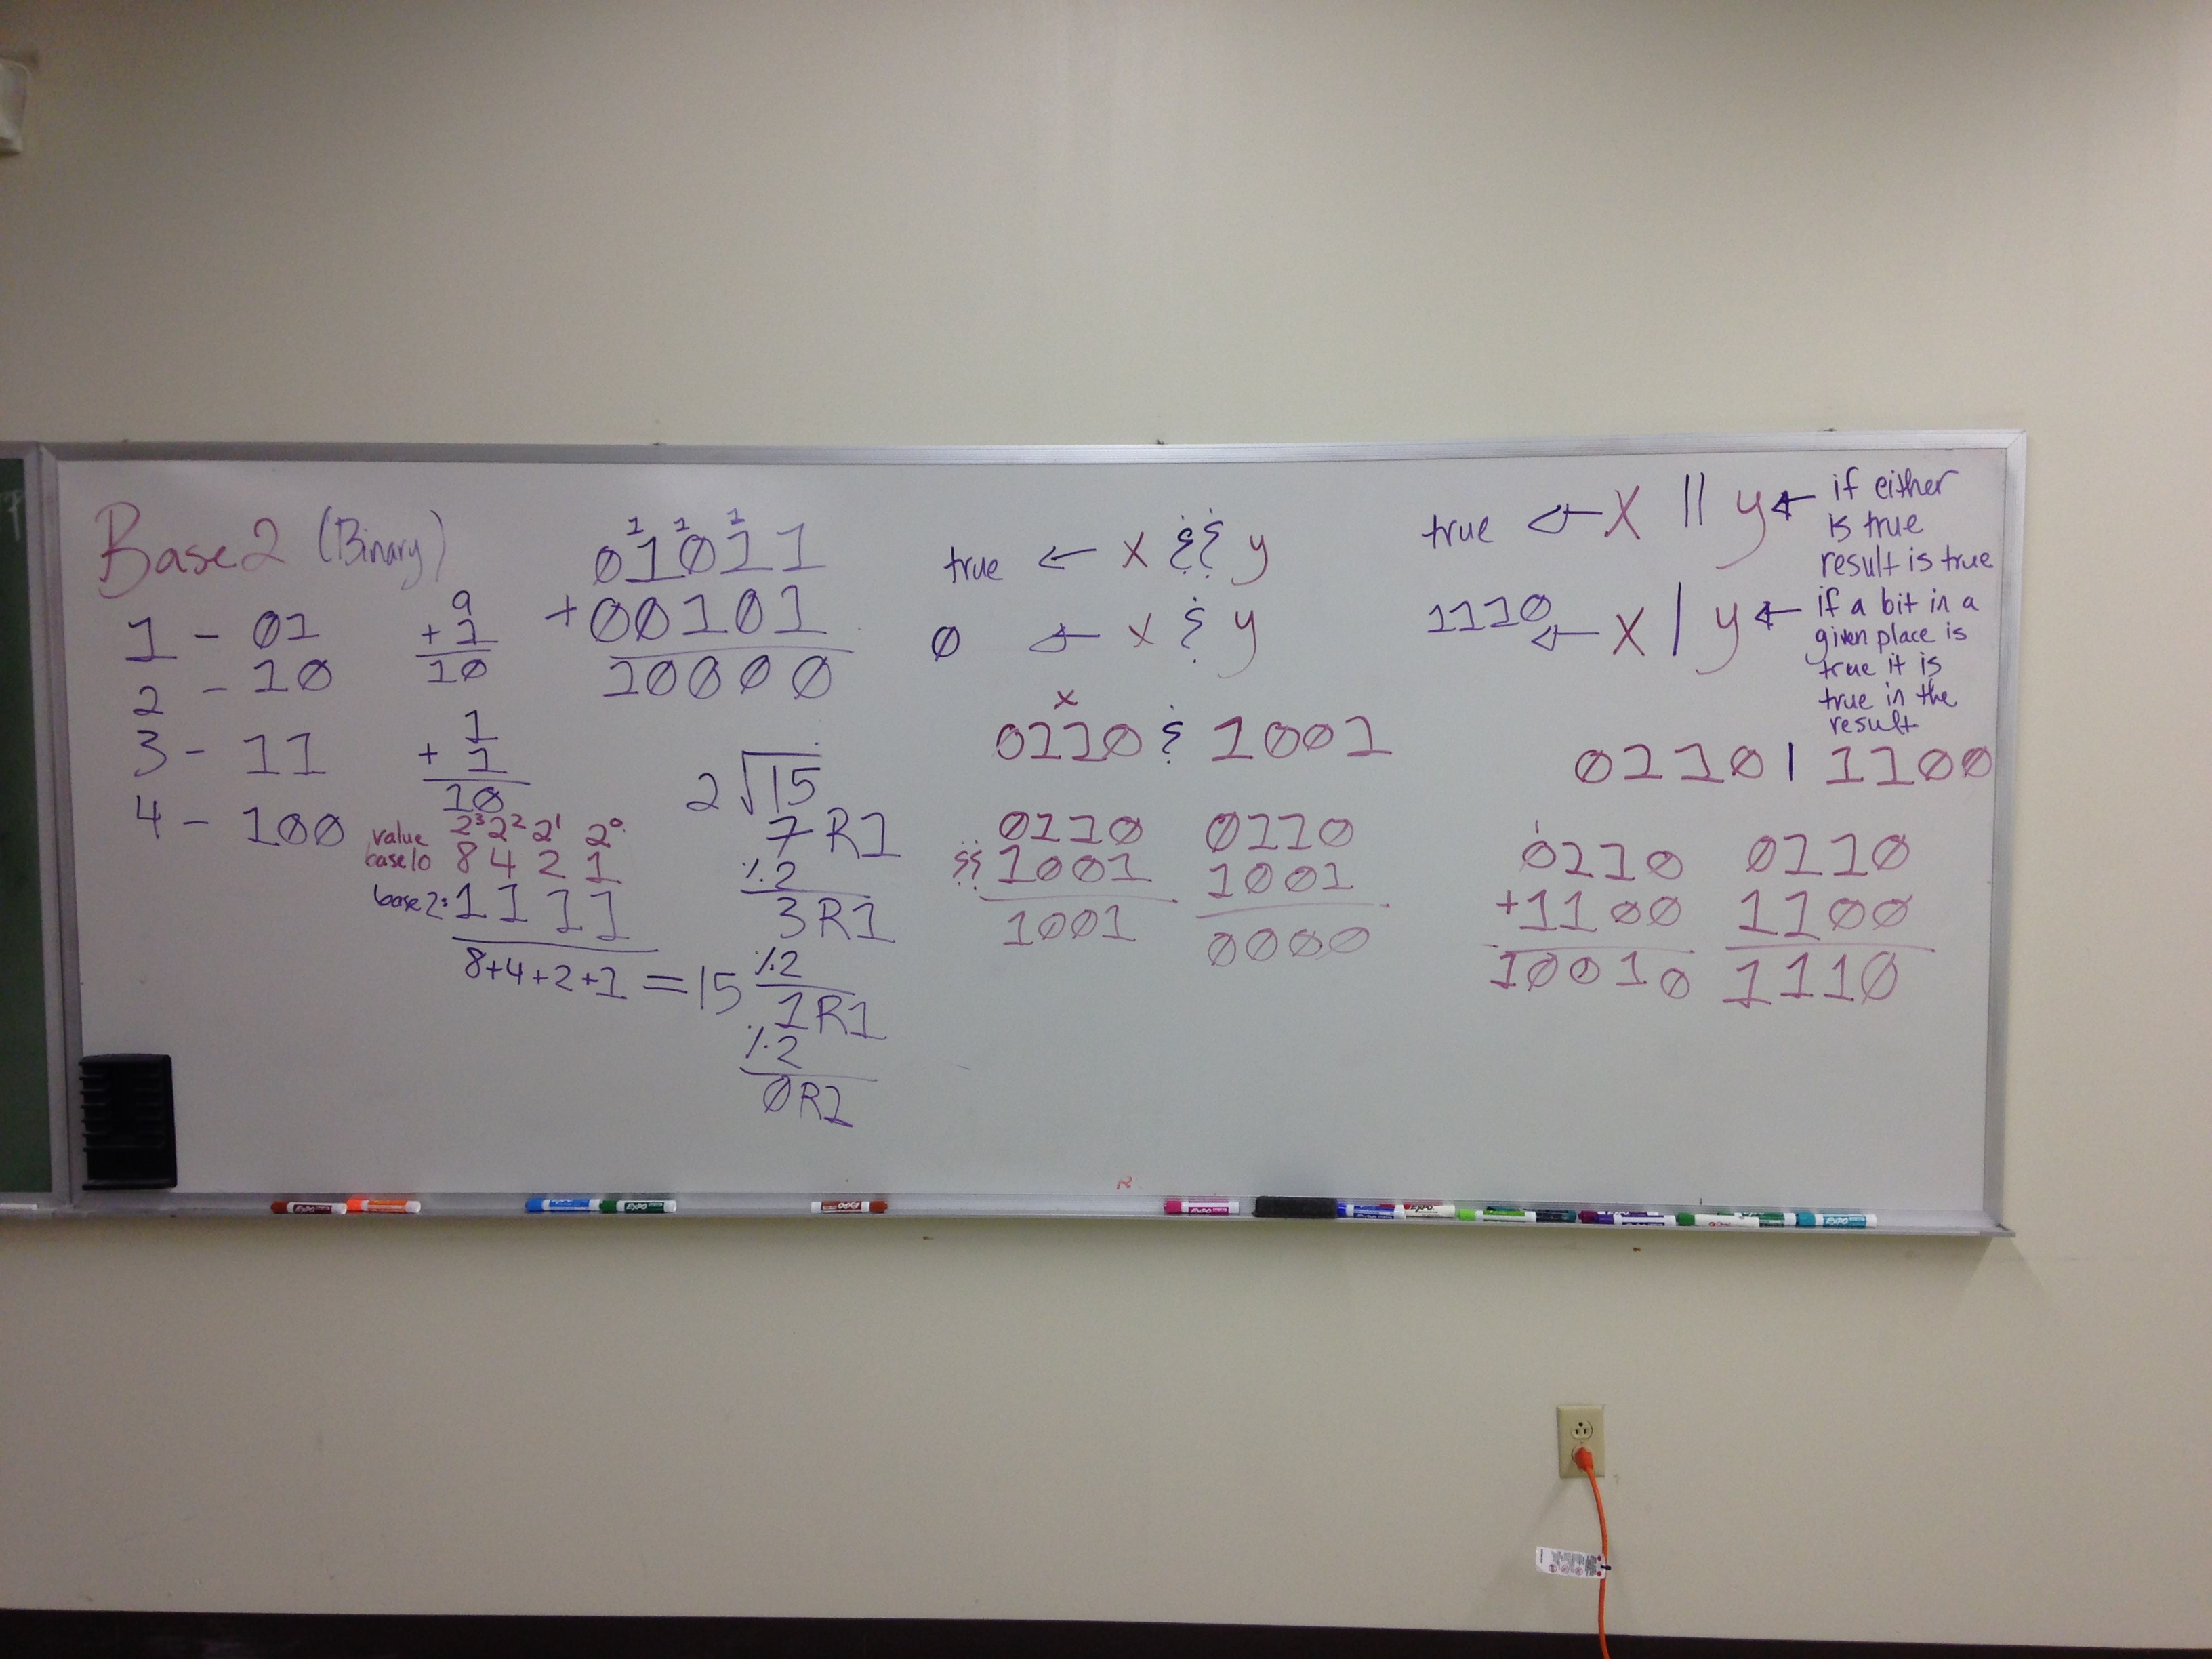 Base 2 (Binary)
1 - 01
2 - 10
3 - 11
4 - 100
9
+ 1
10
1
+ 1
10
value 2³ 2² 2¹ 2⁰
base10 8 4 2 1
base 2: 1 1 1 1
8+4+2+1 = 15
1 1 1
01011
+00101
10000
2 √15
7 R1
% 2
3 R1
% 2
1 R1
% 2
0 R1
true ← x && y
0 ← x & y
x
0110 & 1001
0110
&& 1001
1001
0110
1001
0000
true ← x || y ← if either
is true
result is true
1110 ← x | y ← if a bit in a
given place is
true it is
true in the
result
0110 | 1100
1
0110
+1100
10010
0110
1100
1110
R
EXPO
EXPO
EXPO
EXPO
EXPO
EXPO
EXPO